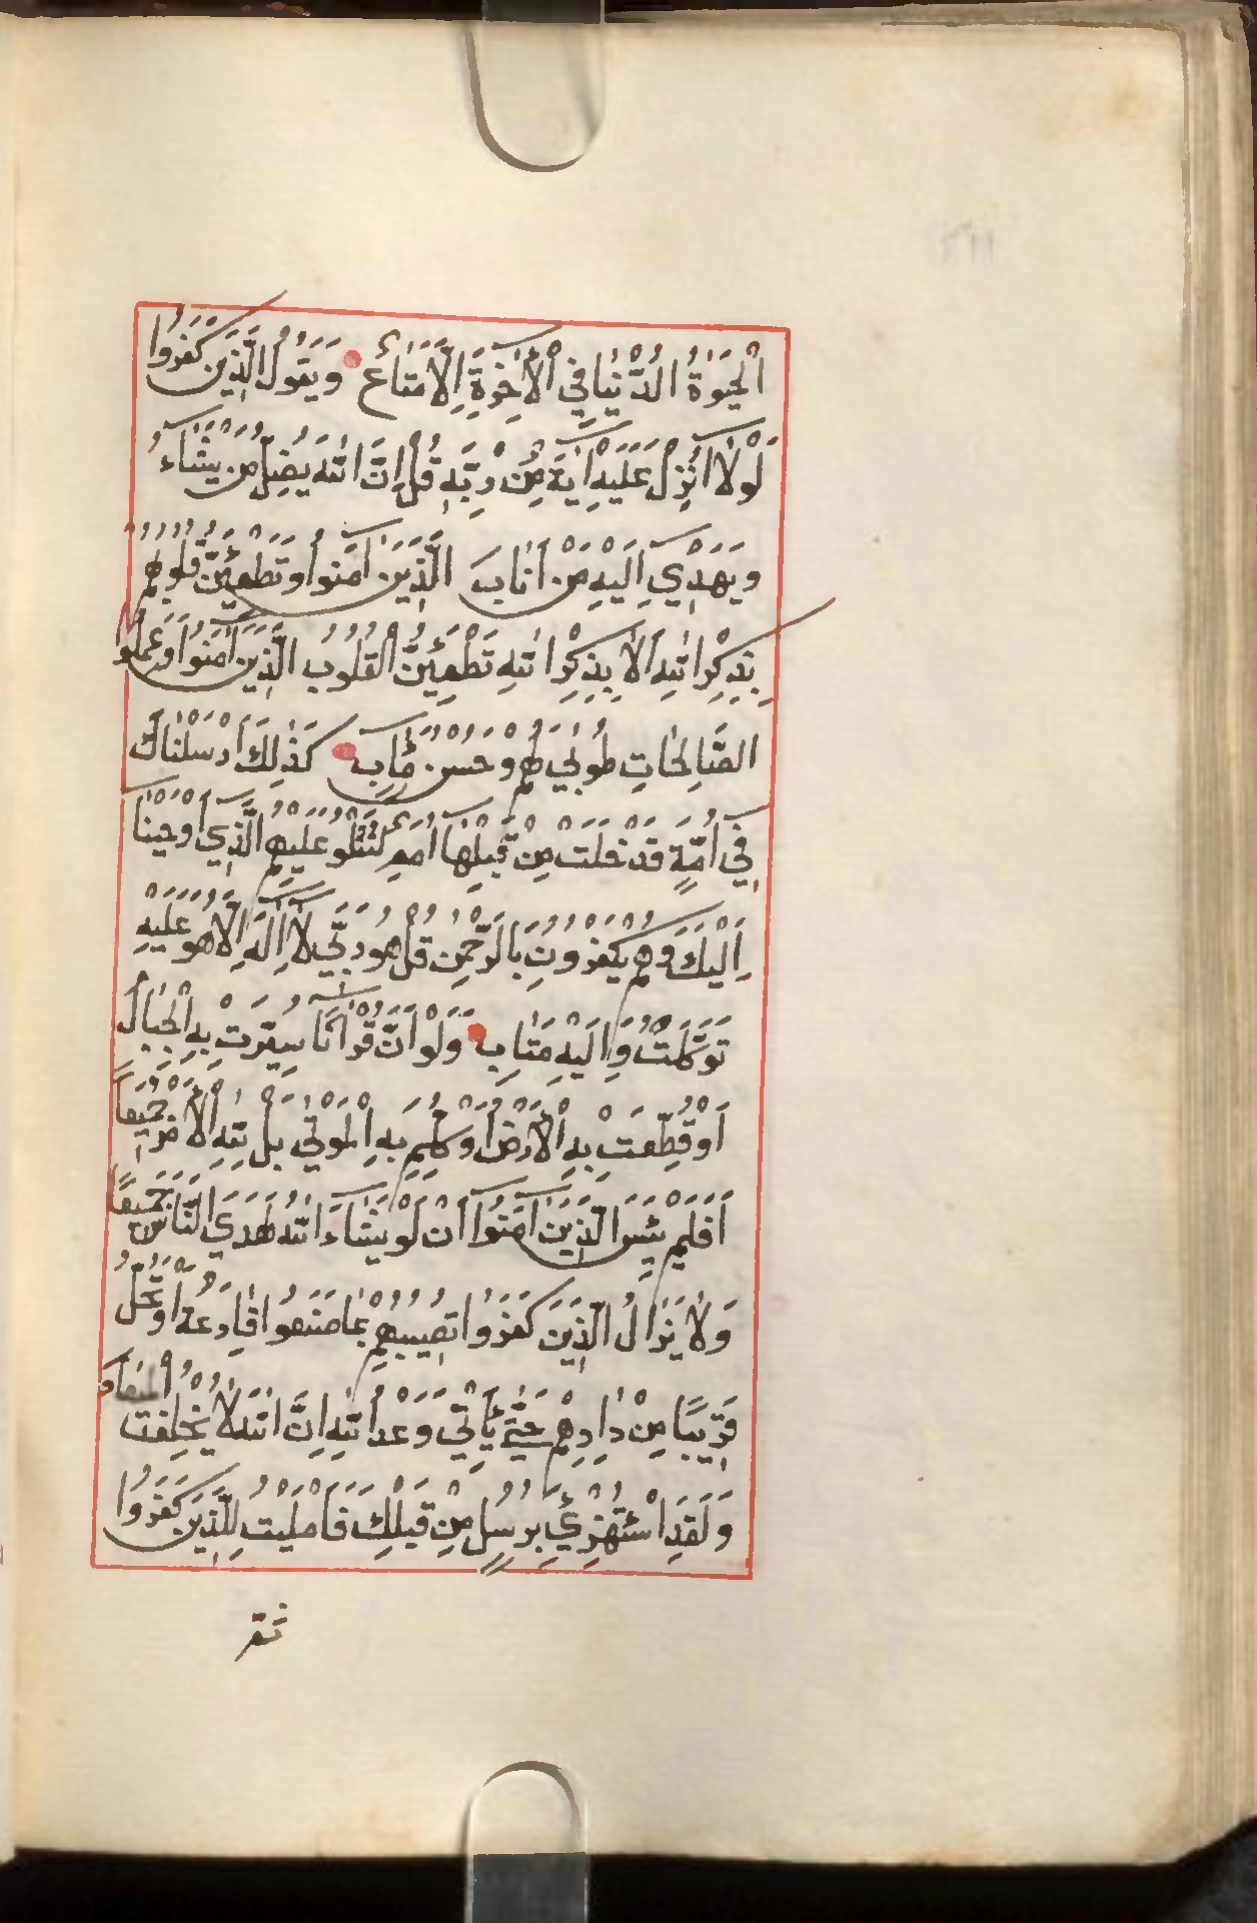 اَلْحَيٰوةُ الدُّنْيٰا فِي الْاٰخِرَةِ اِلَّا مَتَاعٌ وَيَقُولُ الَّذِينَ كَفَرُوا
لَوْلَا اُنْزِلَ عَلَيْهِ اٰيَةٌ مِنْ رَبِّهِ قُلْ اِنَّ اللّٰهَ يُضِلُّ مَنْ يَشَاءُ
وَيَهْدِي اِلَيْهِ مَنْ اَنَابَ الَّذِينَ اٰمَنُوا وَتَطْمَئِنُّ قُلُوبُهُمْ
بِذِكْرِ اللّٰهِ اَلَا بِذِكْرِ اللّٰهِ تَطْمَئِنُّ الْقُلُوبُ الَّذِينَ اٰمَنُوا وَعَمِلُوا
الصَّالِحَاتِ طُوبٰي لَهُمْ وَحُسْنُ مَاٰبٍ كَذٰلِكَ اَرْسَلْنَاكَ
فِي اُمَّةٍ قَدْ خَلَتْ مِنْ قَبْلِهَا اُمَمٌ لِتَتْلُوَ عَلَيْهِمُ الَّذِي اَوْحَيْنَا
اِلَيْكَ وَهُمْ يَكْفُرُونَ بِالرَّحْمٰنِ قُلْ هُوَ رَبِّي لَا اِلٰهَ اِلَّا هُوَ عَلَيْهِ
تَوَكَّلْتُ وَاِلَيْهِ مَتَابِ وَلَوْ اَنَّ قُرْاٰنًا سُيِّرَتْ بِهِ الْجِبَالُ
اَوْ قُطِّعَتْ بِهِ الْاَرْضُ اَوْ كُلِّمَ بِهِ الْمَوْتٰي بَلْ لِلّٰهِ الْاَمْرُ جَمِيعًا
اَفَلَمْ يَيْئَسِ الَّذِينَ اٰمَنُوا اَنْ لَوْ يَشَاءُ اللّٰهُ لَهَدَي النَّاسَ جَمِيعًا
وَلَا يَزَالُ الَّذِينَ كَفَرُوا تُصِيبُهُمْ بِمَا صَنَعُوا قَارِعَةٌ اَوْ تَحُلُّ
قَرِيبًا مِنْ دَارِهِمْ حَتّٰي يَاْتِيَ وَعْدُ اللّٰهِ اِنَّ اللّٰهَ لَا يُخْلِفُ الْمِيعَادَ
وَلَقَدِ اسْتُهْزِئَ بِرُسُلٍ مِنْ قَبْلِكَ فَاَمْلَيْتُ لِلَّذِينَ كَفَرُوا